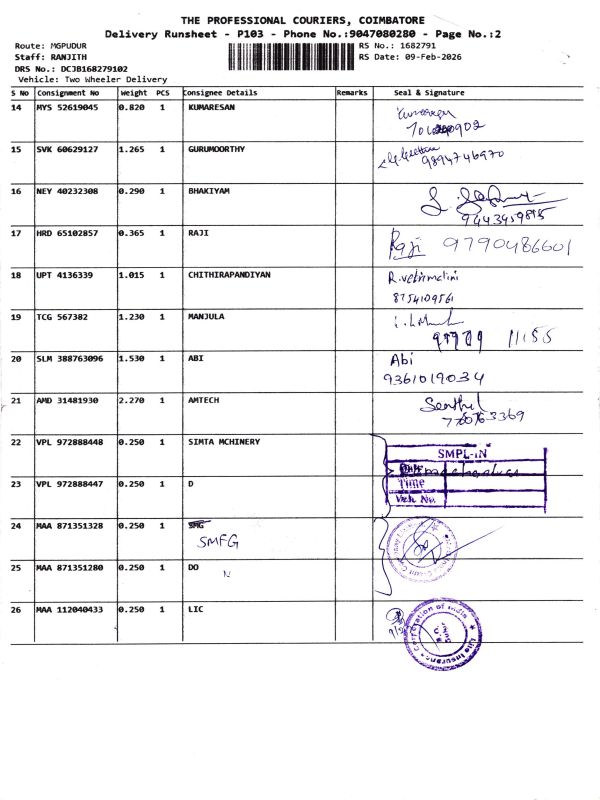 THE PROFESSIONAL COURIERS, COIMBATORE
Delivery Runsheet - P103 - Phone No.:9047080280 - Page No.:2
Route: MGPUDUR
RS No.: 1682791
Staff: RANJITH
RS Date: 09-Feb-2026
DRS No.: DCJB168279102
Vehicle: Two Wheeler Delivery
S No Consignment No Weight PCS Consignee Details Remarks Seal & Signature
14 MYS 52619045 0.820 1 KUMARESAN
15 SVK 60629127 1.265 1 GURUMOORTHY
9894746970
16 NEY 40232308 0.290 1 BHAKIYAM
17 HRD 65102857 0.365 1 RAJI Raji 9790486601
18 UPT 4136339 1.015 1 CHITHIRAPANDIYAN R.vetrimalini
8754109561
19 TCG 567382 1.230 1 MANJULA
11:55
20 SLM 388763096 1.530 1 ABI Abi
9361019034
21 AMD 31481930 2.270 1 AMTECH Senthil
22 VPL 972888448 0.250 1 SIMTA MCHINERY
SMPL-IN
Time
Veh No.
23 VPL 972888447 0.250 1 D
24 MAA 871351328 0.250 1 SMG
SMFG
25 MAA 871351280 0.250 1 DO
26 MAA 112040433 0.250 1 LIC
Life Insurance Corporation of India